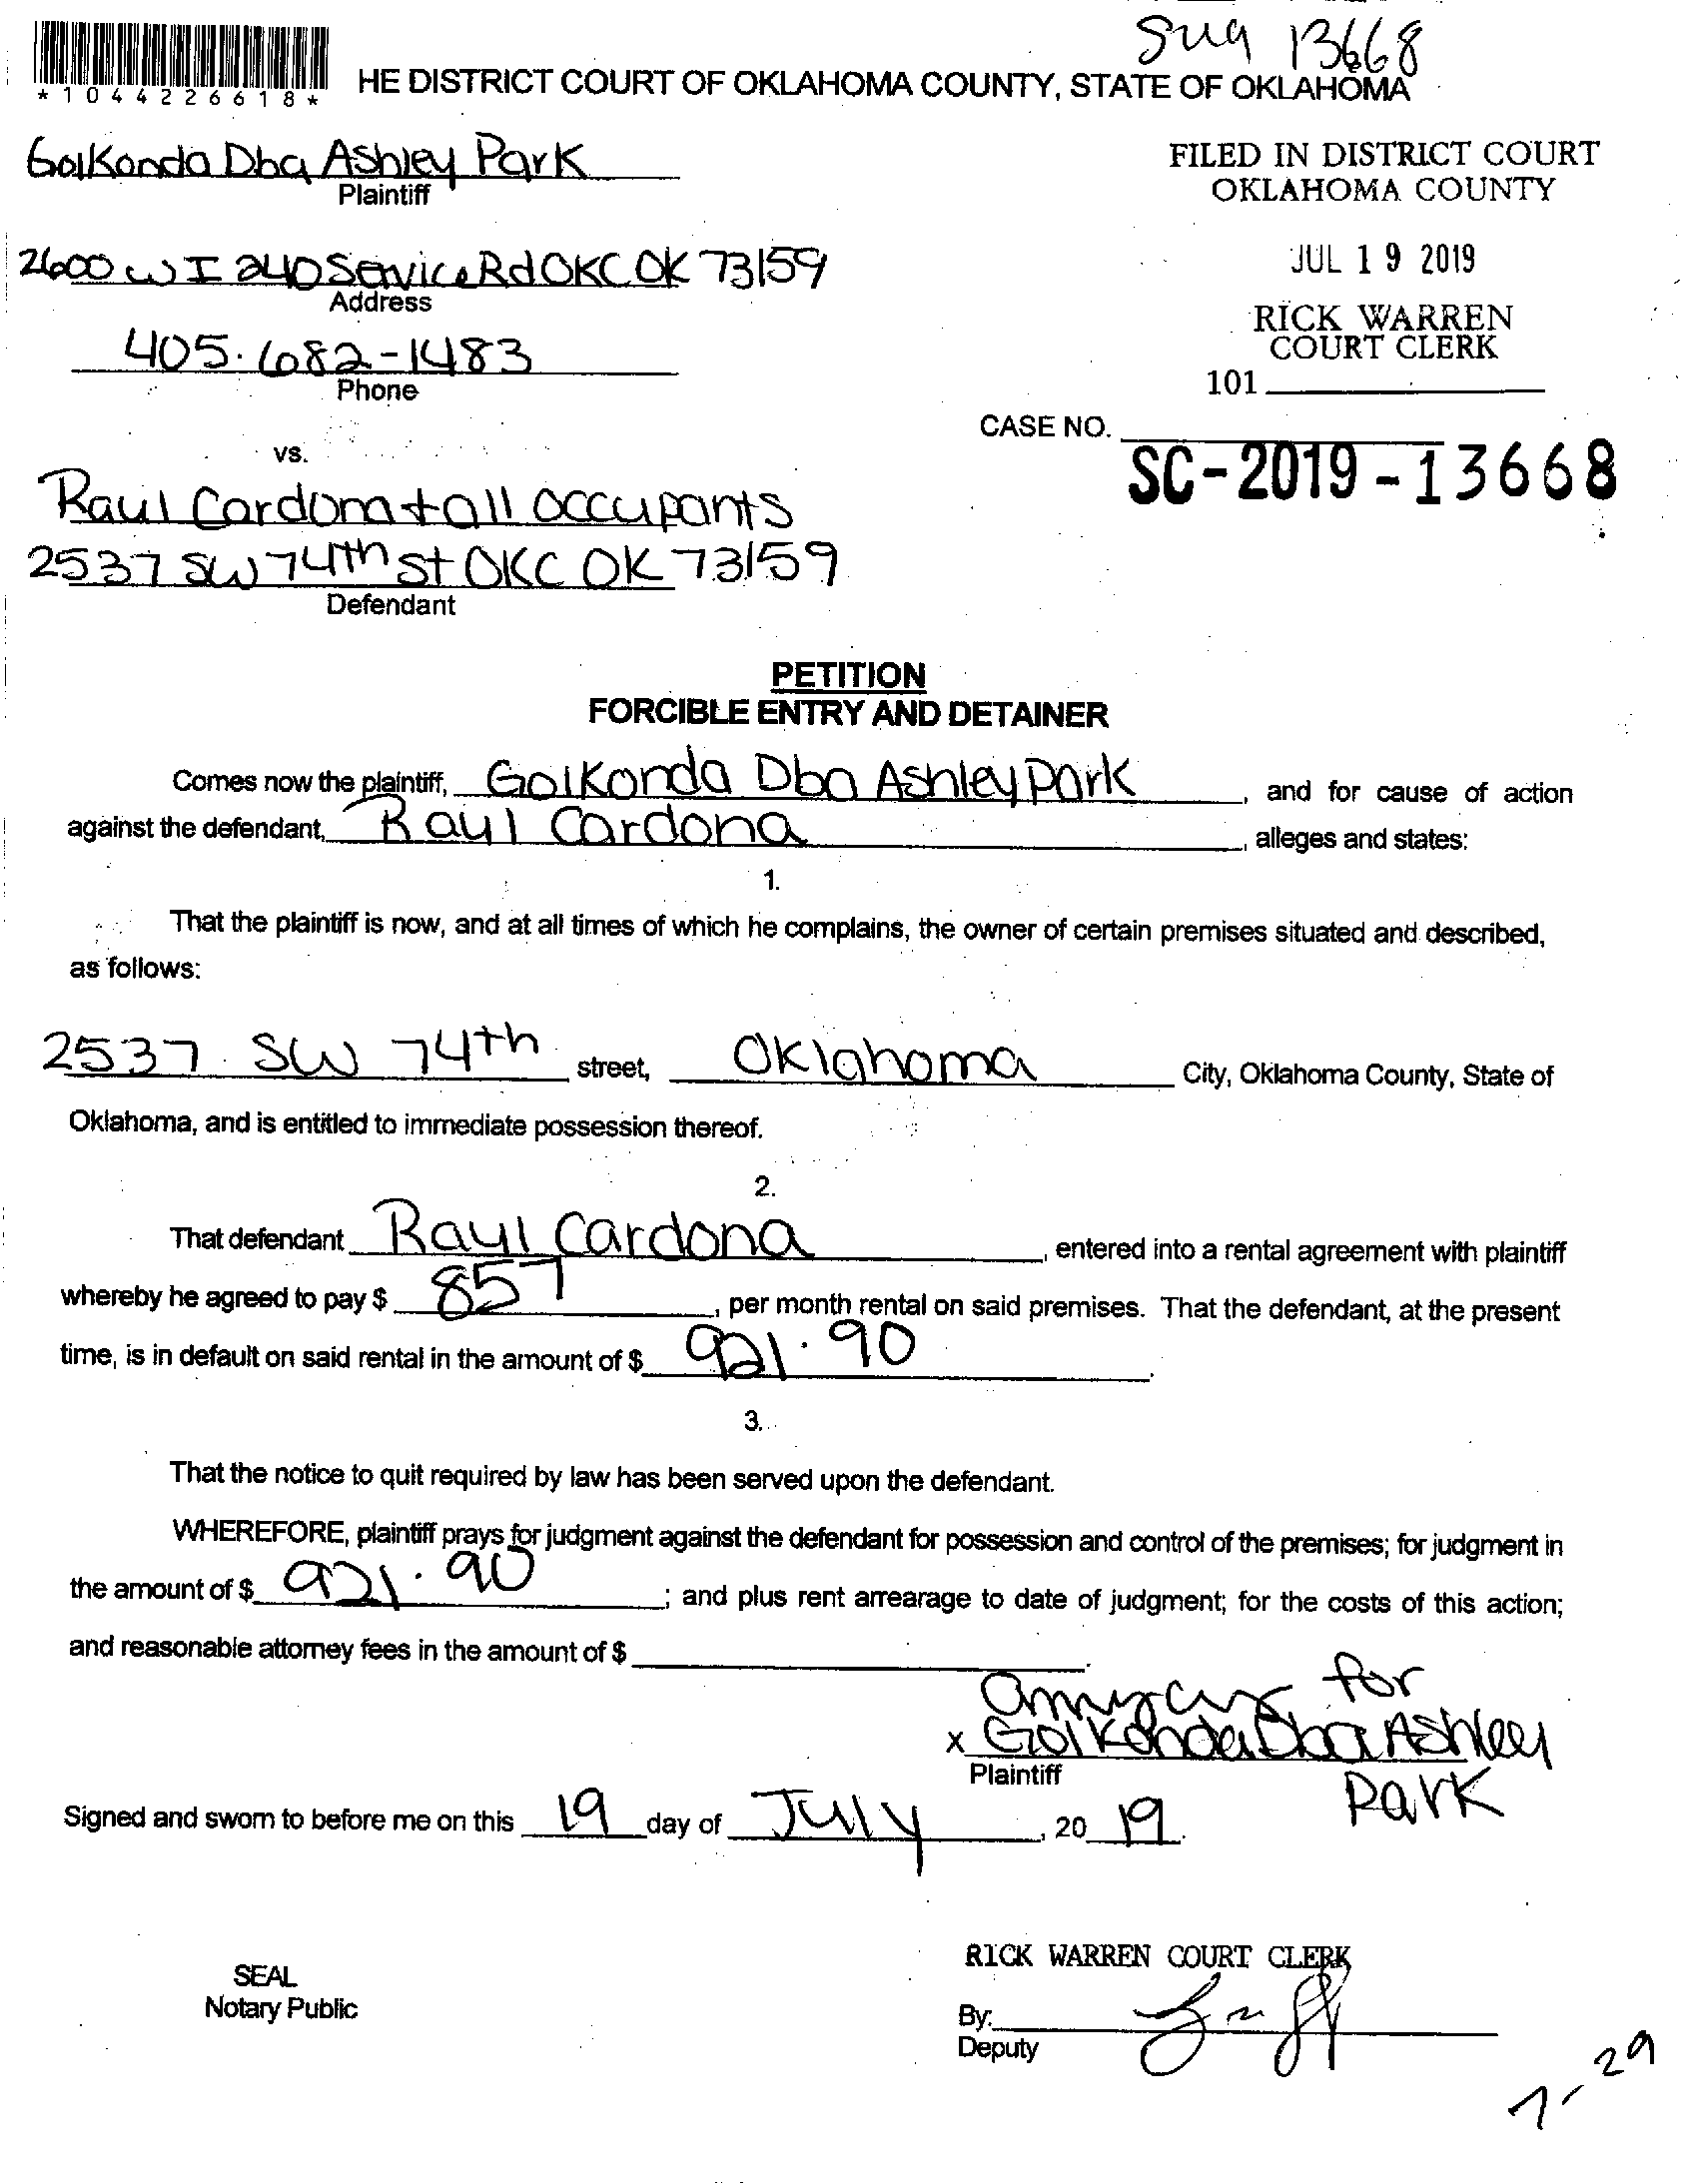 13668
*1044226618*
HE DISTRICT COURT OF OKLAHOMA COUNTY, STATE OF OKLAHOMA
Golkonda Dba Ashley Park
Plaintiff
FILED IN DISTRICT COURT
OKLAHOMA COUNTY
2600 W I 240 Service Rd OKC OK 73159
Address
JUL 19 2019
405.682-1483
Phone
RICK WARREN
COURT CLERK
101
CASE NO.
SC-2019-13668
vs.
Raul Cardona + all occupants
2537 SW 74th St OKC OK 73159
Defendant
PETITION
FORCIBLE ENTRY AND DETAINER
Comes now the plaintiff, Golkonda Dba Ashley Park, and for cause of action
against the defendant, Raul Cardona, alleges and states:
1.
That the plaintiff is now, and at all times of which he complains, the owner of certain premises situated and described,
as follows:
2537 SW 74th street, Oklahoma City, Oklahoma County, State of
Oklahoma, and is entitled to immediate possession thereof.
2.
That defendant Raul Cardona, entered into a rental agreement with plaintiff
whereby he agreed to pay $ 857, per month rental on said premises. That the defendant, at the present
time, is in default on said rental in the amount of $ 921.90.
3.
That the notice to quit required by law has been served upon the defendant.
WHEREFORE, plaintiff prays for judgment against the defendant for possession and control of the premises; for judgment in
the amount of $ 921.90; and plus rent arrearage to date of judgment; for the costs of this action;
and reasonable attorney fees in the amount of $.
for
x Golkonda Dba Ashley
Plaintiff
Park
Signed and sworn to before me on this 19 day of July, 20 19.
RICK WARREN COURT CLERK
SEAL
Notary Public
By:
Deputy
7-29